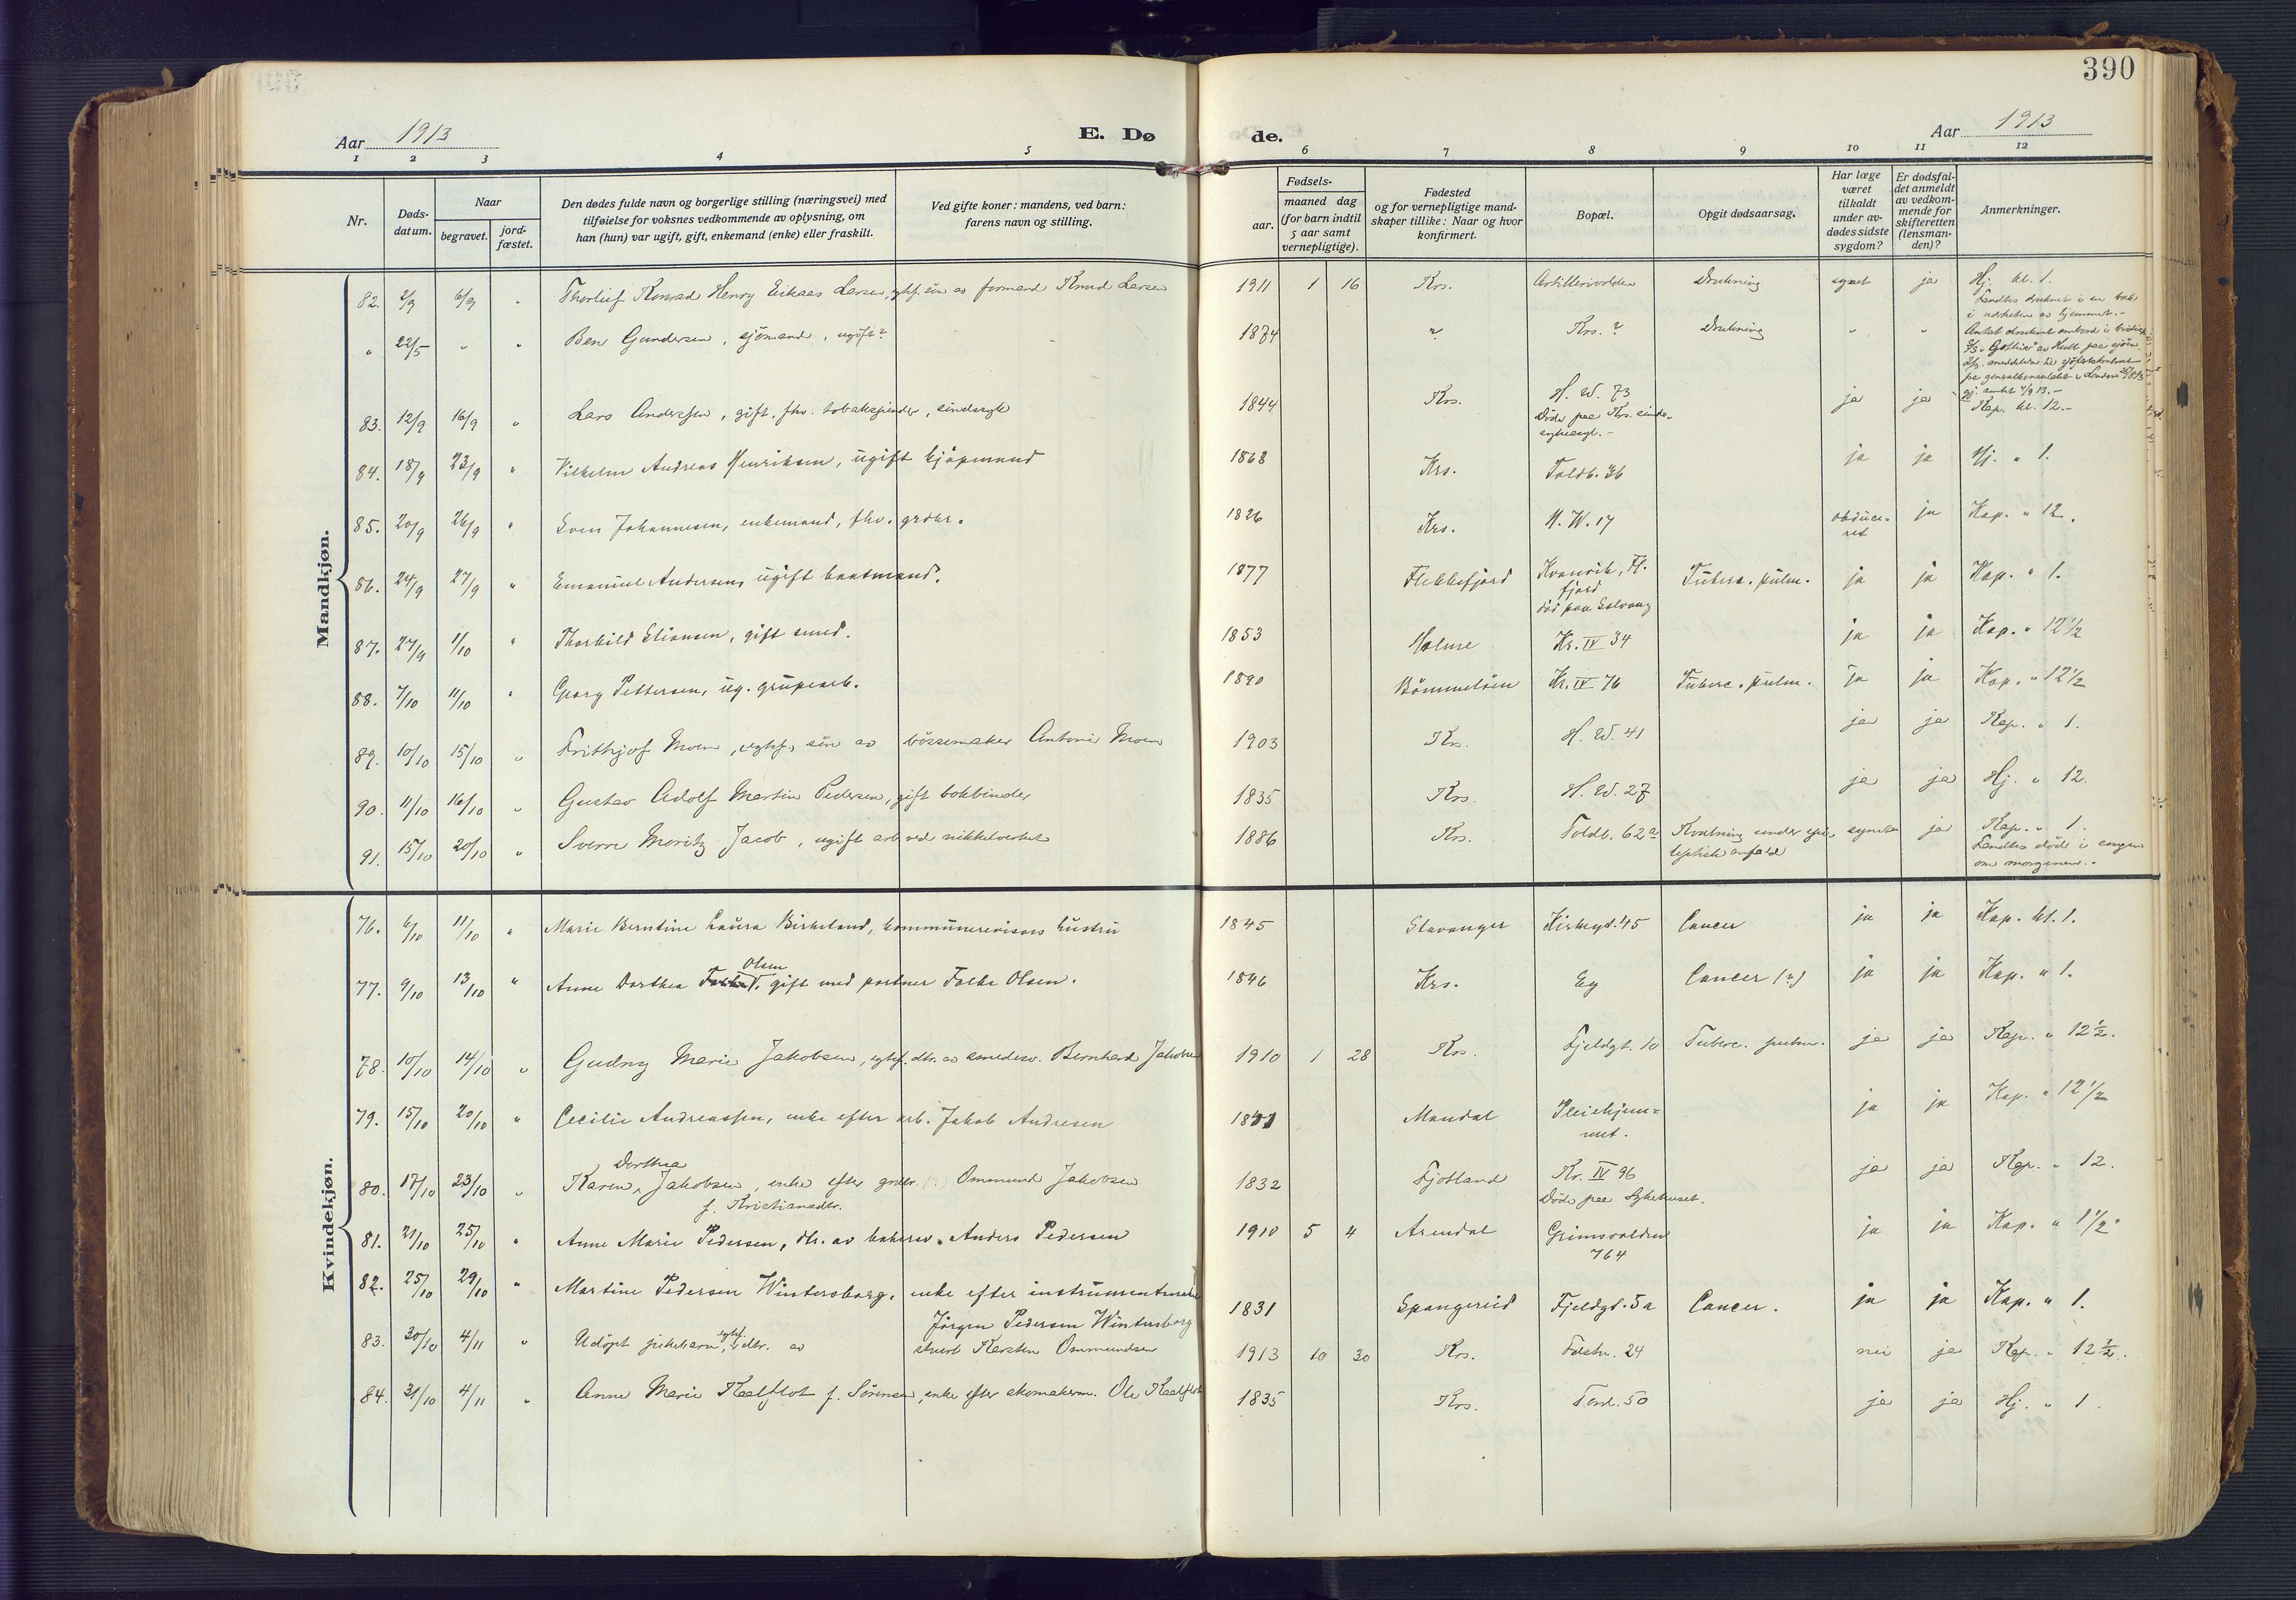 390
Aar 1913
E. Dø
de.
Aar 1913
1 2 3 4 5 6 7 8 9 10 11 12
Nr.
Døds-
datum.
Naar
begravet.
jord-
fæstet.
Den dødes fulde navn og borgerlige stilling (næringsvei) med
tilføielse for voksnes vedkommende av oplysning, om
han (hun) var ugift, gift, enkemand (enke) eller fraskilt.
Ved gifte koner: mandens, ved barn:
farens navn og stilling.
Fødsels-
aar.
maaned dag
(for barn indtil
5 aar samt
vernepligtige).
Fødested
og for vernepligtige mand-
skaper tillike: Naar og hvor
konfirmert.
Bopæl.
Opgit dødsaarsag.
Har læge
været
tilkaldt
under av-
dødes sidste
sygdom?
Er dødsfal-
det anmeldt
av vedkom-
mende for
skifteretten
(lensman-
den)?
Anmerkninger.
Mandkjøn.
82. 2/9 6/9 " Thorlief Konrad Henry Eikaas Larsen, egtef. søn av formand Knud Larsen 1911 1 16 Krs. Artillerivolden Drukning synet ja Hj. kl. 1.
Fandtes druknet i en
i nærheten av hjemmet.-
" 22/5 " " Ben Gundersen, sjømand, ugift? 1874 ? Krs. ? Drukning " "
83. 12/9 16/9 " Lars Anderssen, gift, fhv. tobakspinder, sindssyk 1844 Krs. H. W. 73 ja ja Kap. kl. 12.-
Døde paa Krs. sinds-
sykeasyl.-
84. 18/9 23/9 " Vilhelm Andreas Henriksen, ugift kjøpmand 1868 Krs. Toldb. 36 ja ja Hj. " 1.
85. 20/9 26/9 " Sven Johannesen, enkemand, fhv. grdbr. 1826 Krs. H. W. 17 obduce-
ret ja Kap. " 12.
86. 24/9 27/9 " Emanuel Andersen, ugift baatmand. 1877 Flekkefjord Kvanvik, Fl.
fjord
død paa Solvang Tuberc. pulm. ja ja Kap. " 1.
87. 27/9 1/10 " Thorkild Elionsen, gift smed. 1853 Holme Kr. IV 34 ja ja Kap. " 12 1/2
88. 7/10 11/10 " Georg Pettersen, ug. grubearb. 1890 Bømmeløen Kr. IV 76 Tuberc. pulm. ja ja Kap. " 12 1/2
89. 10/10 15/10 " Frithjof Moen, egtef. søn av bøssemaker Antoni Moen 1903 Krs. H. W. 41 ja ja Kap. " 1.
90. 11/10 16/10 " Gustav Adolf Martin Pedersen, gift bokbinder 1835 Krs. H. W. 27 ja ja Hj. " 12.
91. 15/10 20/10 " Sverre Moritz Jacob, ugift arb. ved nikkelverket 1886 Krs. Toldb. 62 a Kvælning under epi-
leptisk anfald synet ja Kap. " 1.
Fandtes død i sengen
om morgenen.-
Kvindekjøn.
76. 6/10 11/10 " Marie Berntine Laura Birkeland, kommunerevisors hustru 1845 Stavanger Kirkegt. 45 Cancer ja ja Kap. kl. 1.
77. 9/10 13/10 " Anne Dorthea Olsen, gift med portner Falke Olsen. 1846 Krs. Eg Cancer (?) ja ja Kap. " 1.
78. 10/10 14/10 " Gudny Marie Jakobsen, egtef. dtr. av smedesv. Bernhard Jakobsen 1910 1 28 Krs. Fjeldgt. 10 Tuberc. pulm. ja ja Kap. " 12 1/2.
79. 15/10 20/10 " Cecilie Andreassen, enke efter arb. Jakob Andresen Mandal Pleiehjem-
met. ja ja Kap. " 12 1/2
80. 17/10 23/10 " Karen Dorthea Jakobsen, enke efter grdbr. Ommund Jakobsen
f. Kristiansdtr. 1832 Fjotland Kr. IV 96
Døde paa Sykehuset. ja ja Kap. " 12.
81. 21/10 25/10 " Anne Marie Pedersen, dtr. av bakersv. Anders Pedersen 1910 5 4 Arendal Grimsvolden
764 ja ja Kap. " 1 1/2.
82. 25/10 29/10 " Martine Pedersen Wintersborg, enke efter instrumentmaker
Jørgen Pedersen Wintersborg 1831 Spangereid Fjeldgt. 5a Cancer. ja ja Kap. " 1.
83. 30/10 4/11 " Udøpt pikebarn, egtef. dtr. av stuert Karsten Ommundsen 1913 10 30 Krs. Festn. 24 nei ja Kap. " 12 1/2.
84. 31/10 4/11 " Anne Marie Kaalflot f. Sørensen, enke efter skomakerm. Ole Kaalflot 1835 Krs. Tord. 50 ja ja Hj. " 1.